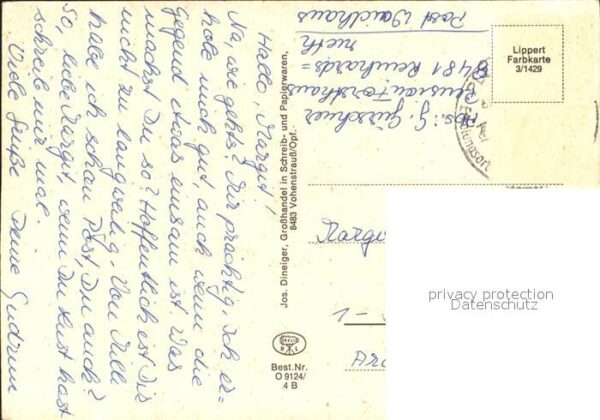 Hallo, Margut!
Na, wie geht's? Mir prächtig, ich er-
hole mich gut, auch wenn die
Gegend etwas einsam ist. Was
machst Du so? Hoffentlich ist Dir
nicht zu langweilig. Von Julle
habe ich schon Post, Du auch?
So, liebe Margit, wenn Du Lust hast
schreib mir mal.
Viele Grüße Deine Gudrun
Jos. Dineiger, Großhandel in Schreib- und Papierwaren,
8483 Vohenstrauß/Opf.
Abs.: G. Gürschner
Pension Forsthaus
8481 Reinhards=
rieth
Post Waidhaus
Lippert
Farbkarte
3/1429
Best.Nr.
O 9124/
4 B
privacy protection
Datenschutz